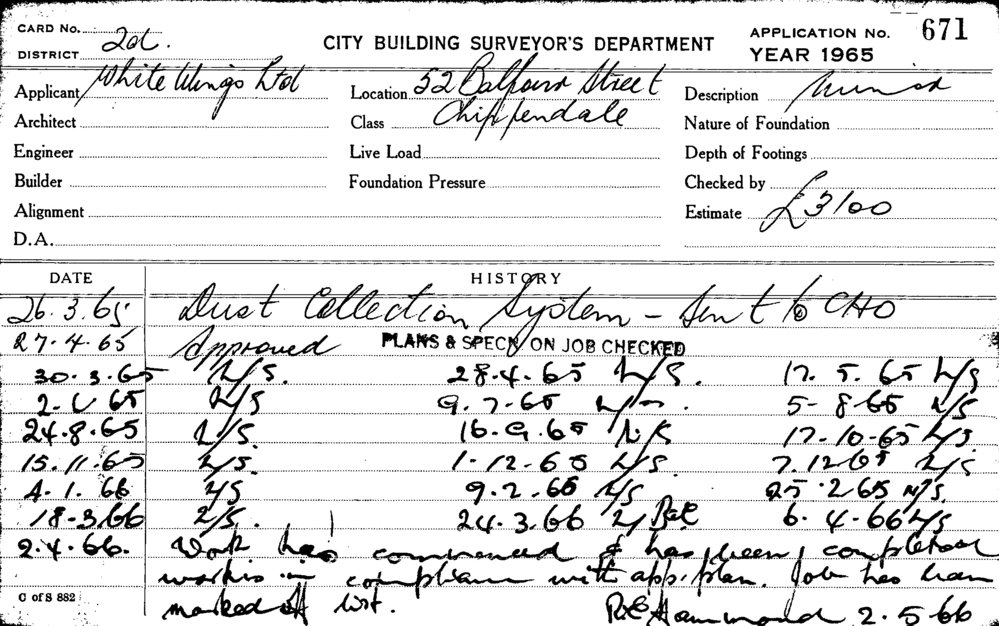 CARD No. 2d. CITY BUILDING SURVEYOR'S DEPARTMENT APPLICATION No. 671
DISTRICT YEAR 1965
Applicant White Wings Ltd Location 52 Balfour Street Description Minor
Architect Class Chippendale Nature of Foundation
Engineer Live Load Depth of Footings
Builder Foundation Pressure Checked by
Alignment Estimate £3100
D.A.
DATE HISTORY
26.3.65 Dust Collection System - Sent to CHO
27.4.65 Approved PLANS & SPECN ON JOB CHECKED
30.3.65 N/S. 28.4.65 N/S. 17.5.65 N/S
2.6.65 N/S 9.7.65 5-8-65 N/S
24.8.65 N/S. 16.9.65 N/S 17-10-65 N/S
15.11.65 N/S. 1-12-65 N/S. 7.12.65 N/S
4.1.66 N/S 9.2.66 N/S 25.2.65 N/S.
18-3.66 N/S. 24.3.66 6.4.66 N/S
2.4.66. Work has commenced & has been completed
works in compliance with app. plan. Job has been
C of S 882 marked off list. Hammond 2.5.66